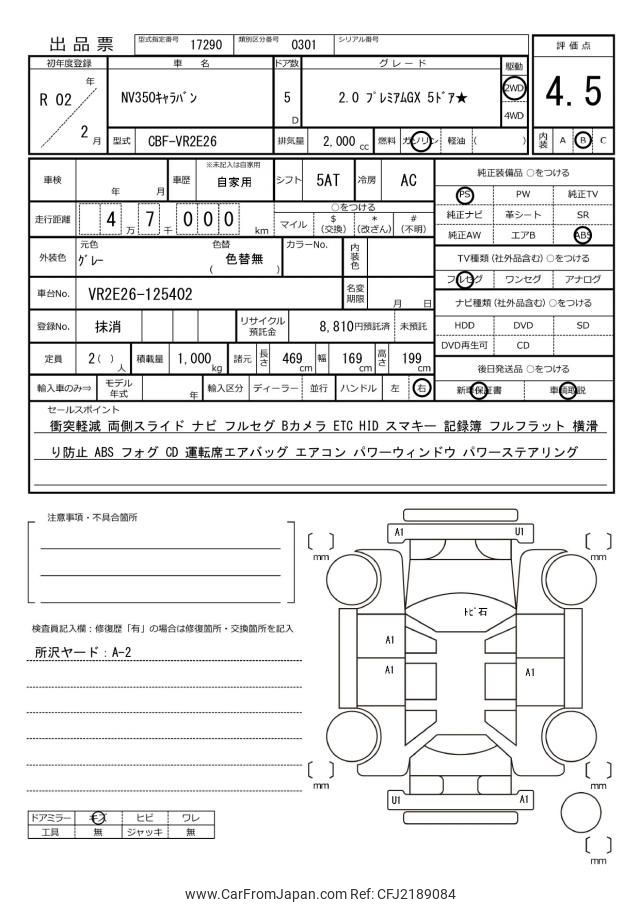 出品票 型式指定番号 17290 類別区分番号 0301 シリアル番号
評価点
4.5
内装 A B C
初年度登録 車名 ドア数 グレード 駆動
R 02 年 2 月
NV350キャラバン 5 D 2.0 プレミアムGX 5ドア★ 2WD 4WD
型式 CBF-VR2E26 排気量 2,000 cc 燃料 ガソリン 軽油 ( )
車検 年 月 車歴 ※未記入は自家用 自家用 シフト 5AT 冷房 AC
走行距離 4 万 7 千 0 0 0 km ○をつける
マイル $ (交換) * (改ざん) # (不明)
外装色 元色 グレー 色替 ( 色替無 ) カラーNo. 内装色
車台No. VR2E26-125402 名変期限 月 日
登録No. 抹消 リサイクル預託金 8,810円預託済 未預託
定員 2( ) 人 積載量 1,000 kg 諸元 長さ 469 cm 幅 169 cm 高さ 199 cm
輸入車のみ⇒ モデル年式 年 輸入区分 ディーラー 並行 ハンドル 左 右
純正装備品 ○をつける
PS PW 純正TV
純正ナビ 革シート SR
純正AW エアB ABS
TV種類 (社外品含む) ○をつける
フルセグ ワンセグ アナログ
ナビ種類 (社外品含む) ○をつける
HDD DVD SD
DVD再生可 CD
後日発送品 ○をつける
新車保証書 車輌取説
セールスポイント
衝突軽減 両側スライド ナビ フルセグ Bカメラ ETC HID スマキー 記録簿 フルフラット 横滑
り防止 ABS フォグ CD 運転席エアバッグ エアコン パワーウィンドウ パワーステアリング
注意事項・不具合箇所
検査員記入欄：修復歴「有」の場合は修復箇所・交換箇所を記入
所沢ヤード：A-2
ドアミラー キズ ヒビ ワレ
工具 無 ジャッキ 無
A1 U1
mm mm
トビ石
A1
A1 A1
mm mm
U1 A1
mm
www.CarFromJapan.com Ref: CFJ2189084